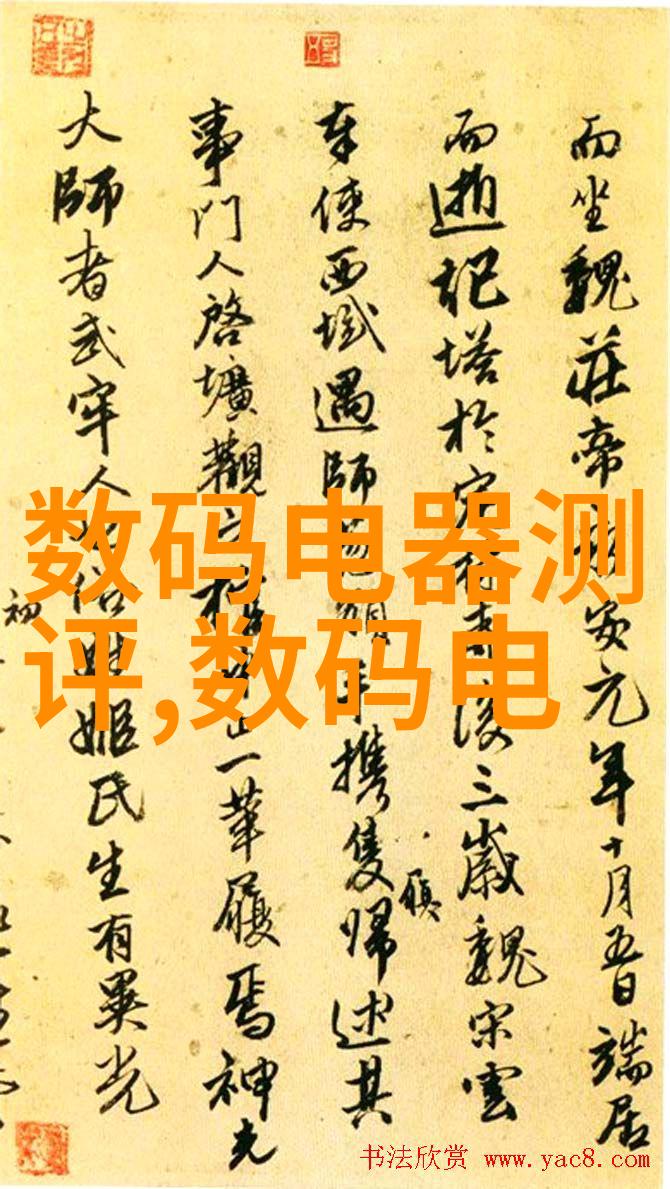 而坐魏莊帝安元年十月五日端居
而逝祀塔於定後三歲魏宋雲
奉使西域遇師手携隻歸述其
履
事門人啓壙觀之一革履焉神光
大師者武牢人俗姓姬氏生有異光
初
数码电器测
评,数码电
书法欣赏 www.yac8.com